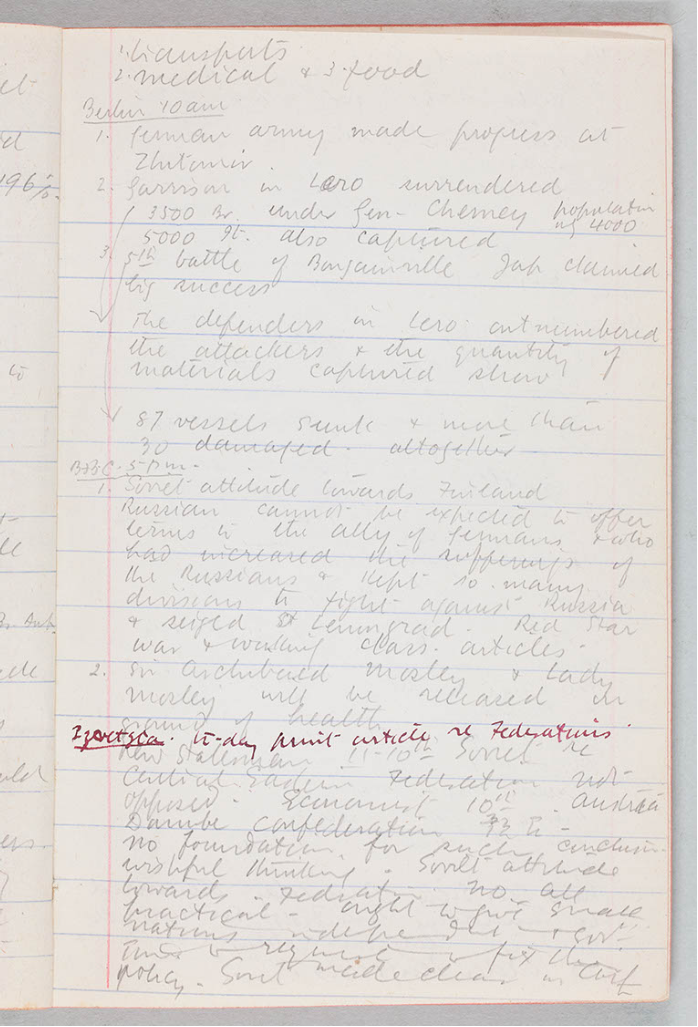 1. transports
2. medical & 3. food
Berlin 10am
1. German army made progress at
Zhitomir.
2. Garrison in Lero surrendered
3500 Br. under Gen. population
5000 It. also captured of 4000
3. 5th battle of Bougainville Jap claimed
big success
The defenders in Lero outnumbered
the attackers & the quantity of
materials captured show
87 vessels sunk & more than
30 damaged altogether
BBC. 5 pm.
1. Soviet attitude towards Finland
Russian cannot be expected to offer
terms to the ally of Germans & who
had increased the sufferings of
the Russians & kept so many
divisions to fight against Russia
& seiged St Leningrad. Red Star
war & working class. articles.
2. Sir Archibald Mosley & Lady
Mosley will be released on
ground of health
to-day print article re Federations
New Statesman 10th Soviet re
Central Eastern Federation not
opposed. Economist 10th. Austria
Danube confederation
no foundation for such conclusion
wishful thinking. Soviet attitude
towards Federation. no all
practical. ought to give small
nations
time
policy. Soviet made clear in
196
Br. Amb.